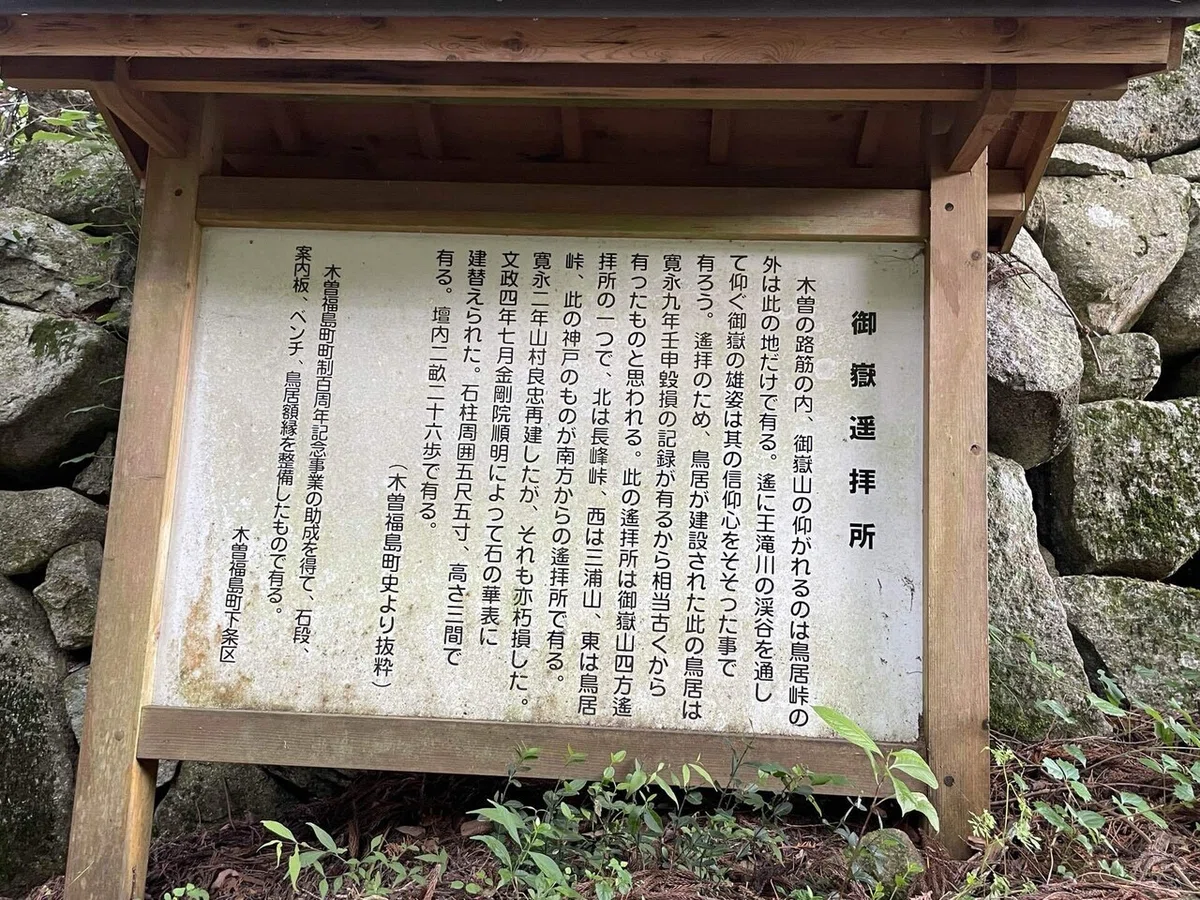 御嶽遥拝所
木曽の路筋の内、御嶽山の仰がれるのは鳥居峠の
外は此の地だけで有る。遙に王滝川の渓谷を通し
て仰ぐ御嶽の雄姿は其の信仰心をそそった事で
有ろう。遙拝のため、鳥居が建設された此の鳥居は
寛永九年壬申毀損の記録が有るから相当古くから
有ったものと思われる。此の遙拝所は御嶽山四方遙
拝所の一つで、北は長峰峠、西は三浦山、東は鳥居
峠、此の神戸のものが南方からの遙拝所で有る。
寛永二年山村良忠再建したが、それも亦朽損した。
文政四年七月金剛院順明によって石の華表に
建替えられた。石柱周囲五尺五寸、高さ三間で
有る。壇内二畝二十六歩で有る。
（木曽福島町史より抜粋）
木曽福島町町制百周年記念事業の助成を得て、石段、
案内板、ベンチ、鳥居額縁を整備したもので有る。
木曽福島町下条区